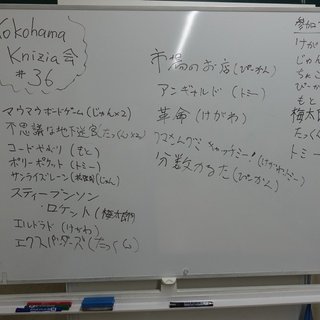 Yokohama
Knizia会
#36
マウマウボードゲーム(じゅん×2)
不思議な地下迷宮(たっくん×2)
コードやぶり(もと)
ポリーポケット(トミー)
サンライズレーン(じゅん)
スティーブンソン
・ロケット(梅太郎)
エルドラド(けがわ)
エクスパンダーズ(たっくん)
市場のお店(ぴーかん)
アンギャルド(トミー)
革命(けがわ)
分数かるた(ぴーかん)
参加
けが
じゅん
ちょこ
ぴーか
もと
梅太
たっく
トミー